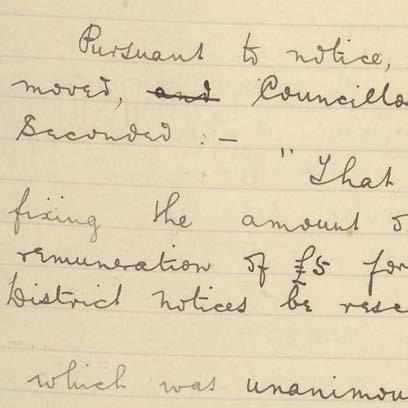 Pursuant to notice,
moved, and Councillo
Seconded :-
" That
fixing the amount o
remuneration of £5 for
District notices be resc
which was unanimou